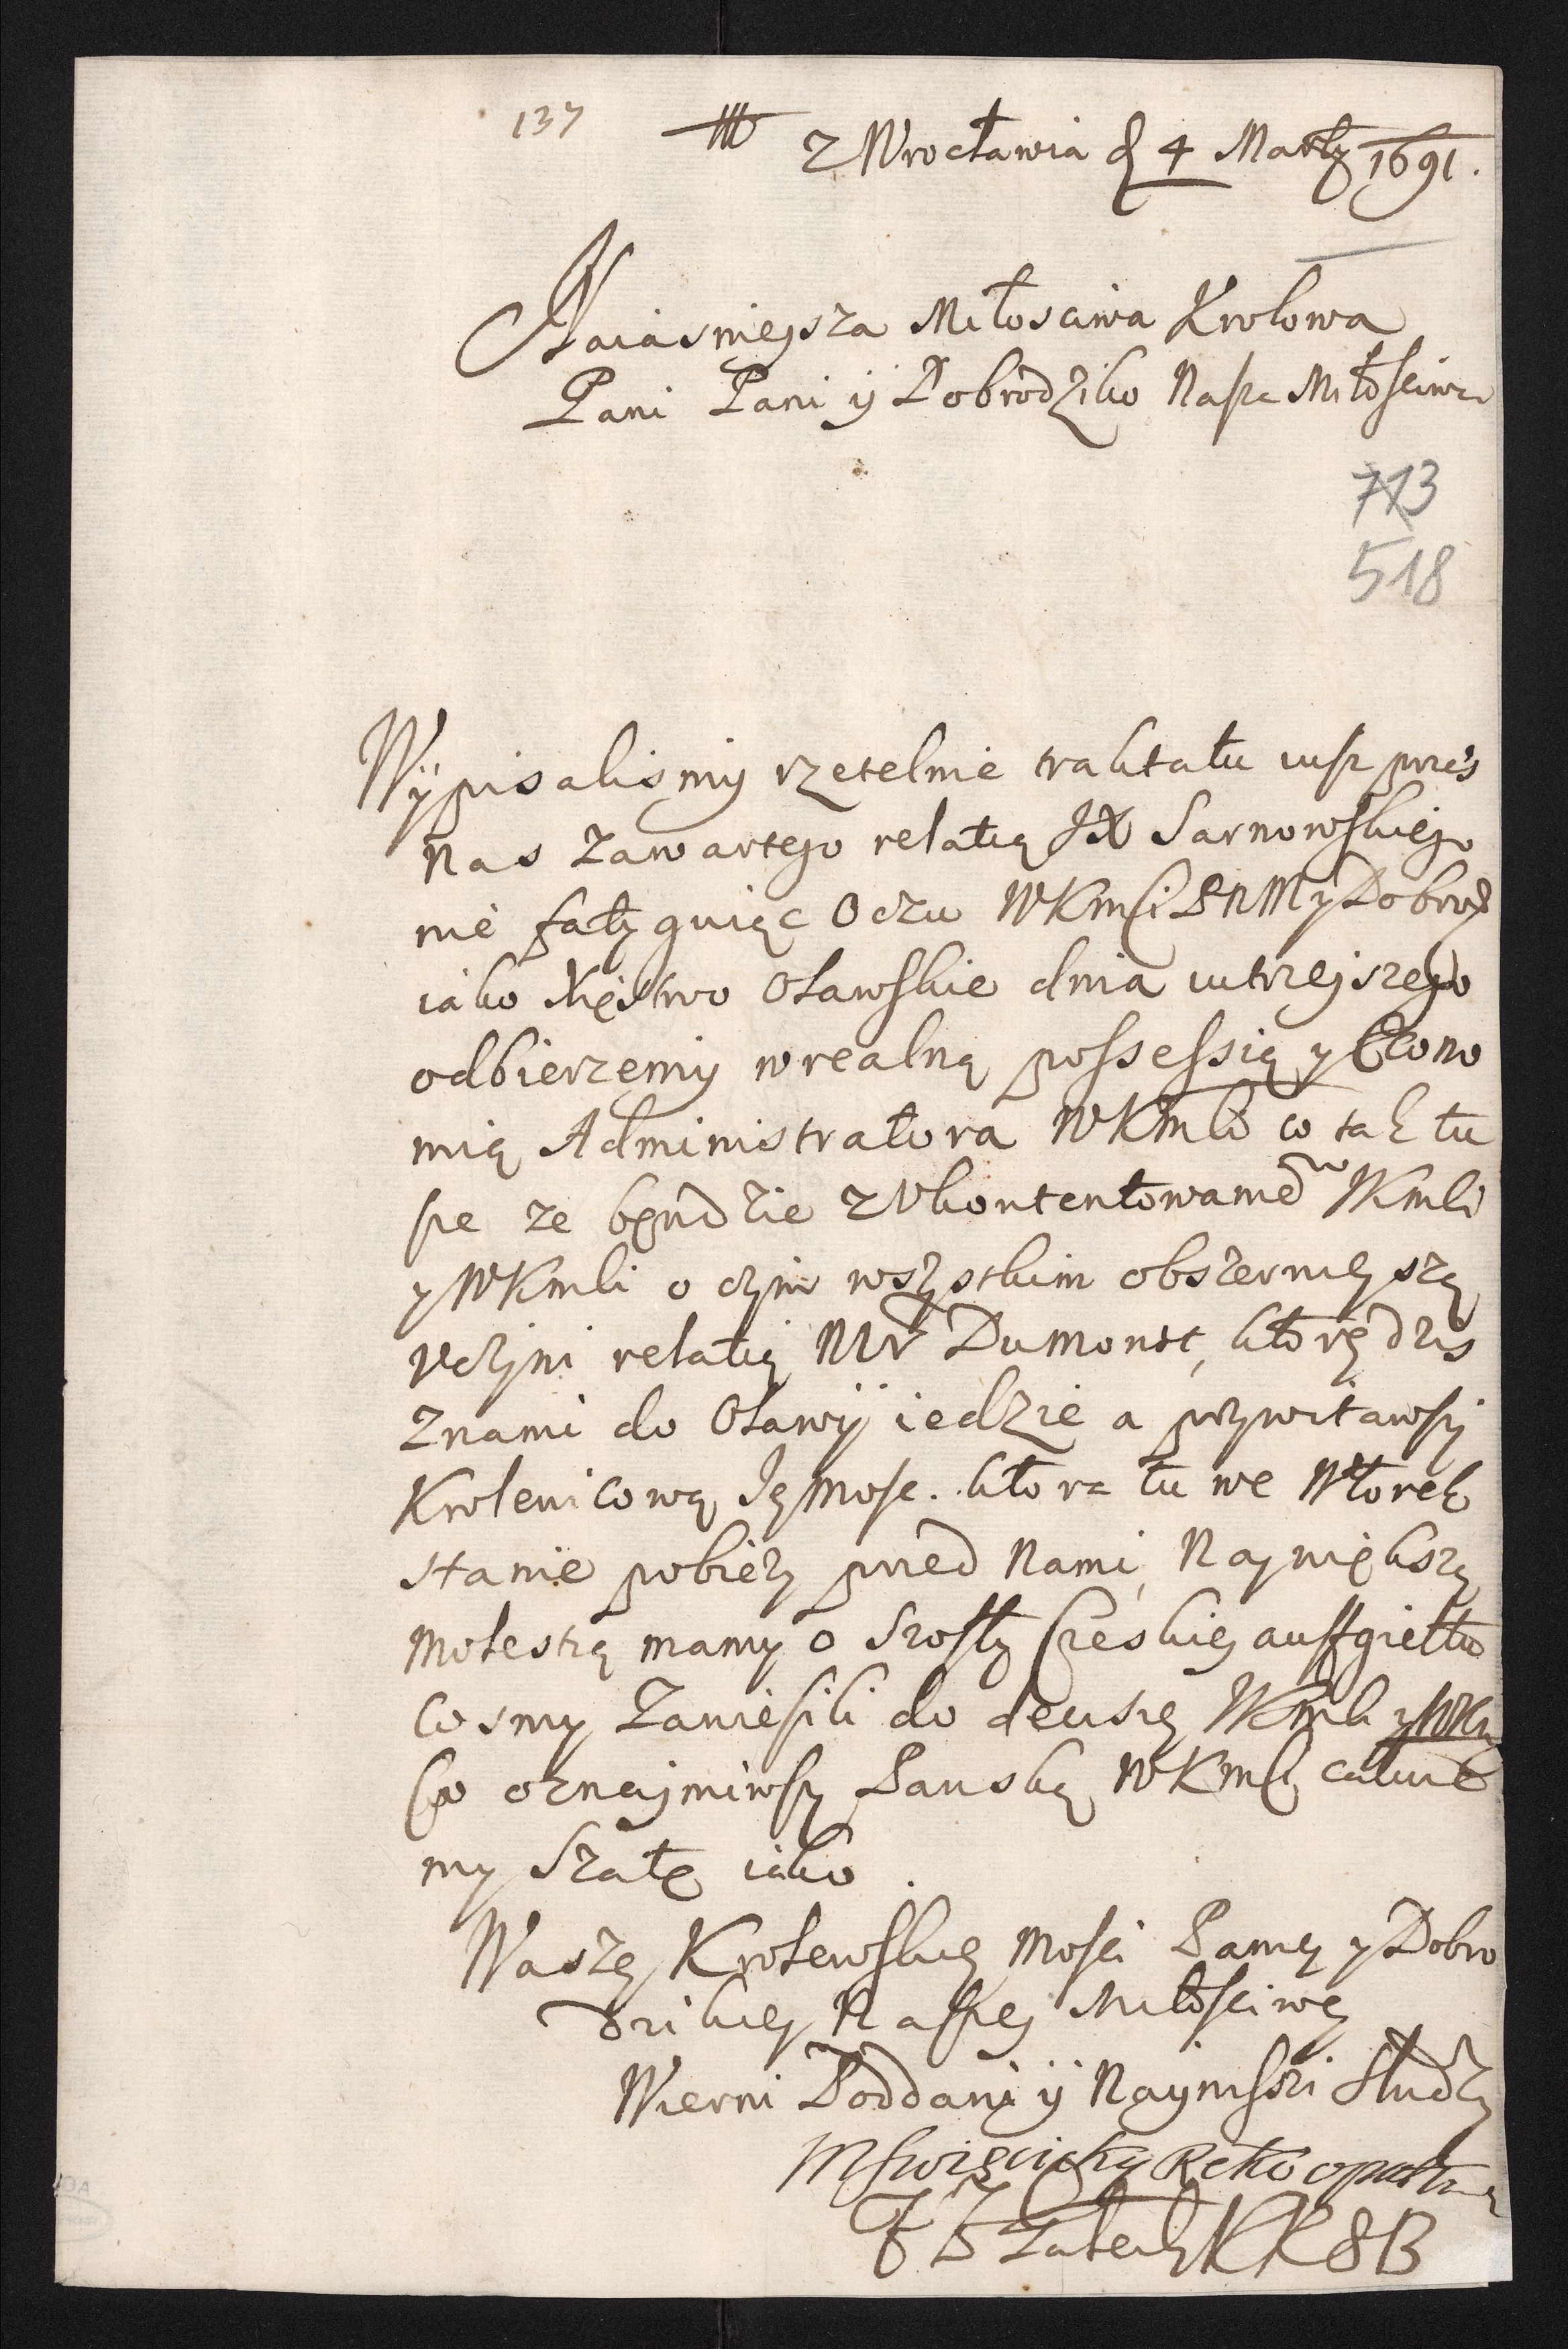 137
Z Wrocławia d 4 Marty 1691.
Naiasnieysza Miłosciwa Krolowa
Pani Pani ÿ Dobrodziko Nasza Miłosciwa
713
518
Wÿpisalismÿ rzetelnie traktatu iusz przes
nas zawartego relatią JX Sarnowskiego
nie fatyguiąc Oczu WKMsci PNM y Dobrodz
iako Xięstwo Oławskie dnia iutrzejszego
odbierzemÿ w realną possessią y Econo
mią Administratora WKMści co tak tu
sze ze będzie z Ukontentowaniem WKMści
y WKMści o czÿm wszystkim obszernieyszą
uczÿni relatią Mr Dumontt, ktorÿ dzis
z nami do Oławÿ iedzie a przywitawszÿ
Krolewicową Jeymosc. ktora tu we Wtorek
stanie pobieży przed nami, Naywiększą
molestią mamy o Szosty Czeskiey auffgieltu
cosmy zaniesili do decisiey WKMści y WKM
Co oznaÿmiwszy Panską WKMści całuie
my Szatę iako.
Waszey Krolewskiey Mosci Paniey y Dobro
dzikiey Naszey Miłosciwey
Wierni Poddani ÿ Nayniszsi Słudzy
M Swięcicky
KK